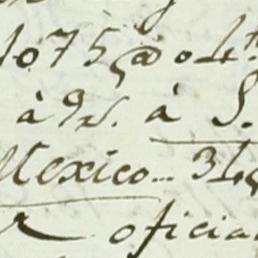 1075 @ 04
à 9 d. à S.
Mexico... 34
oficia